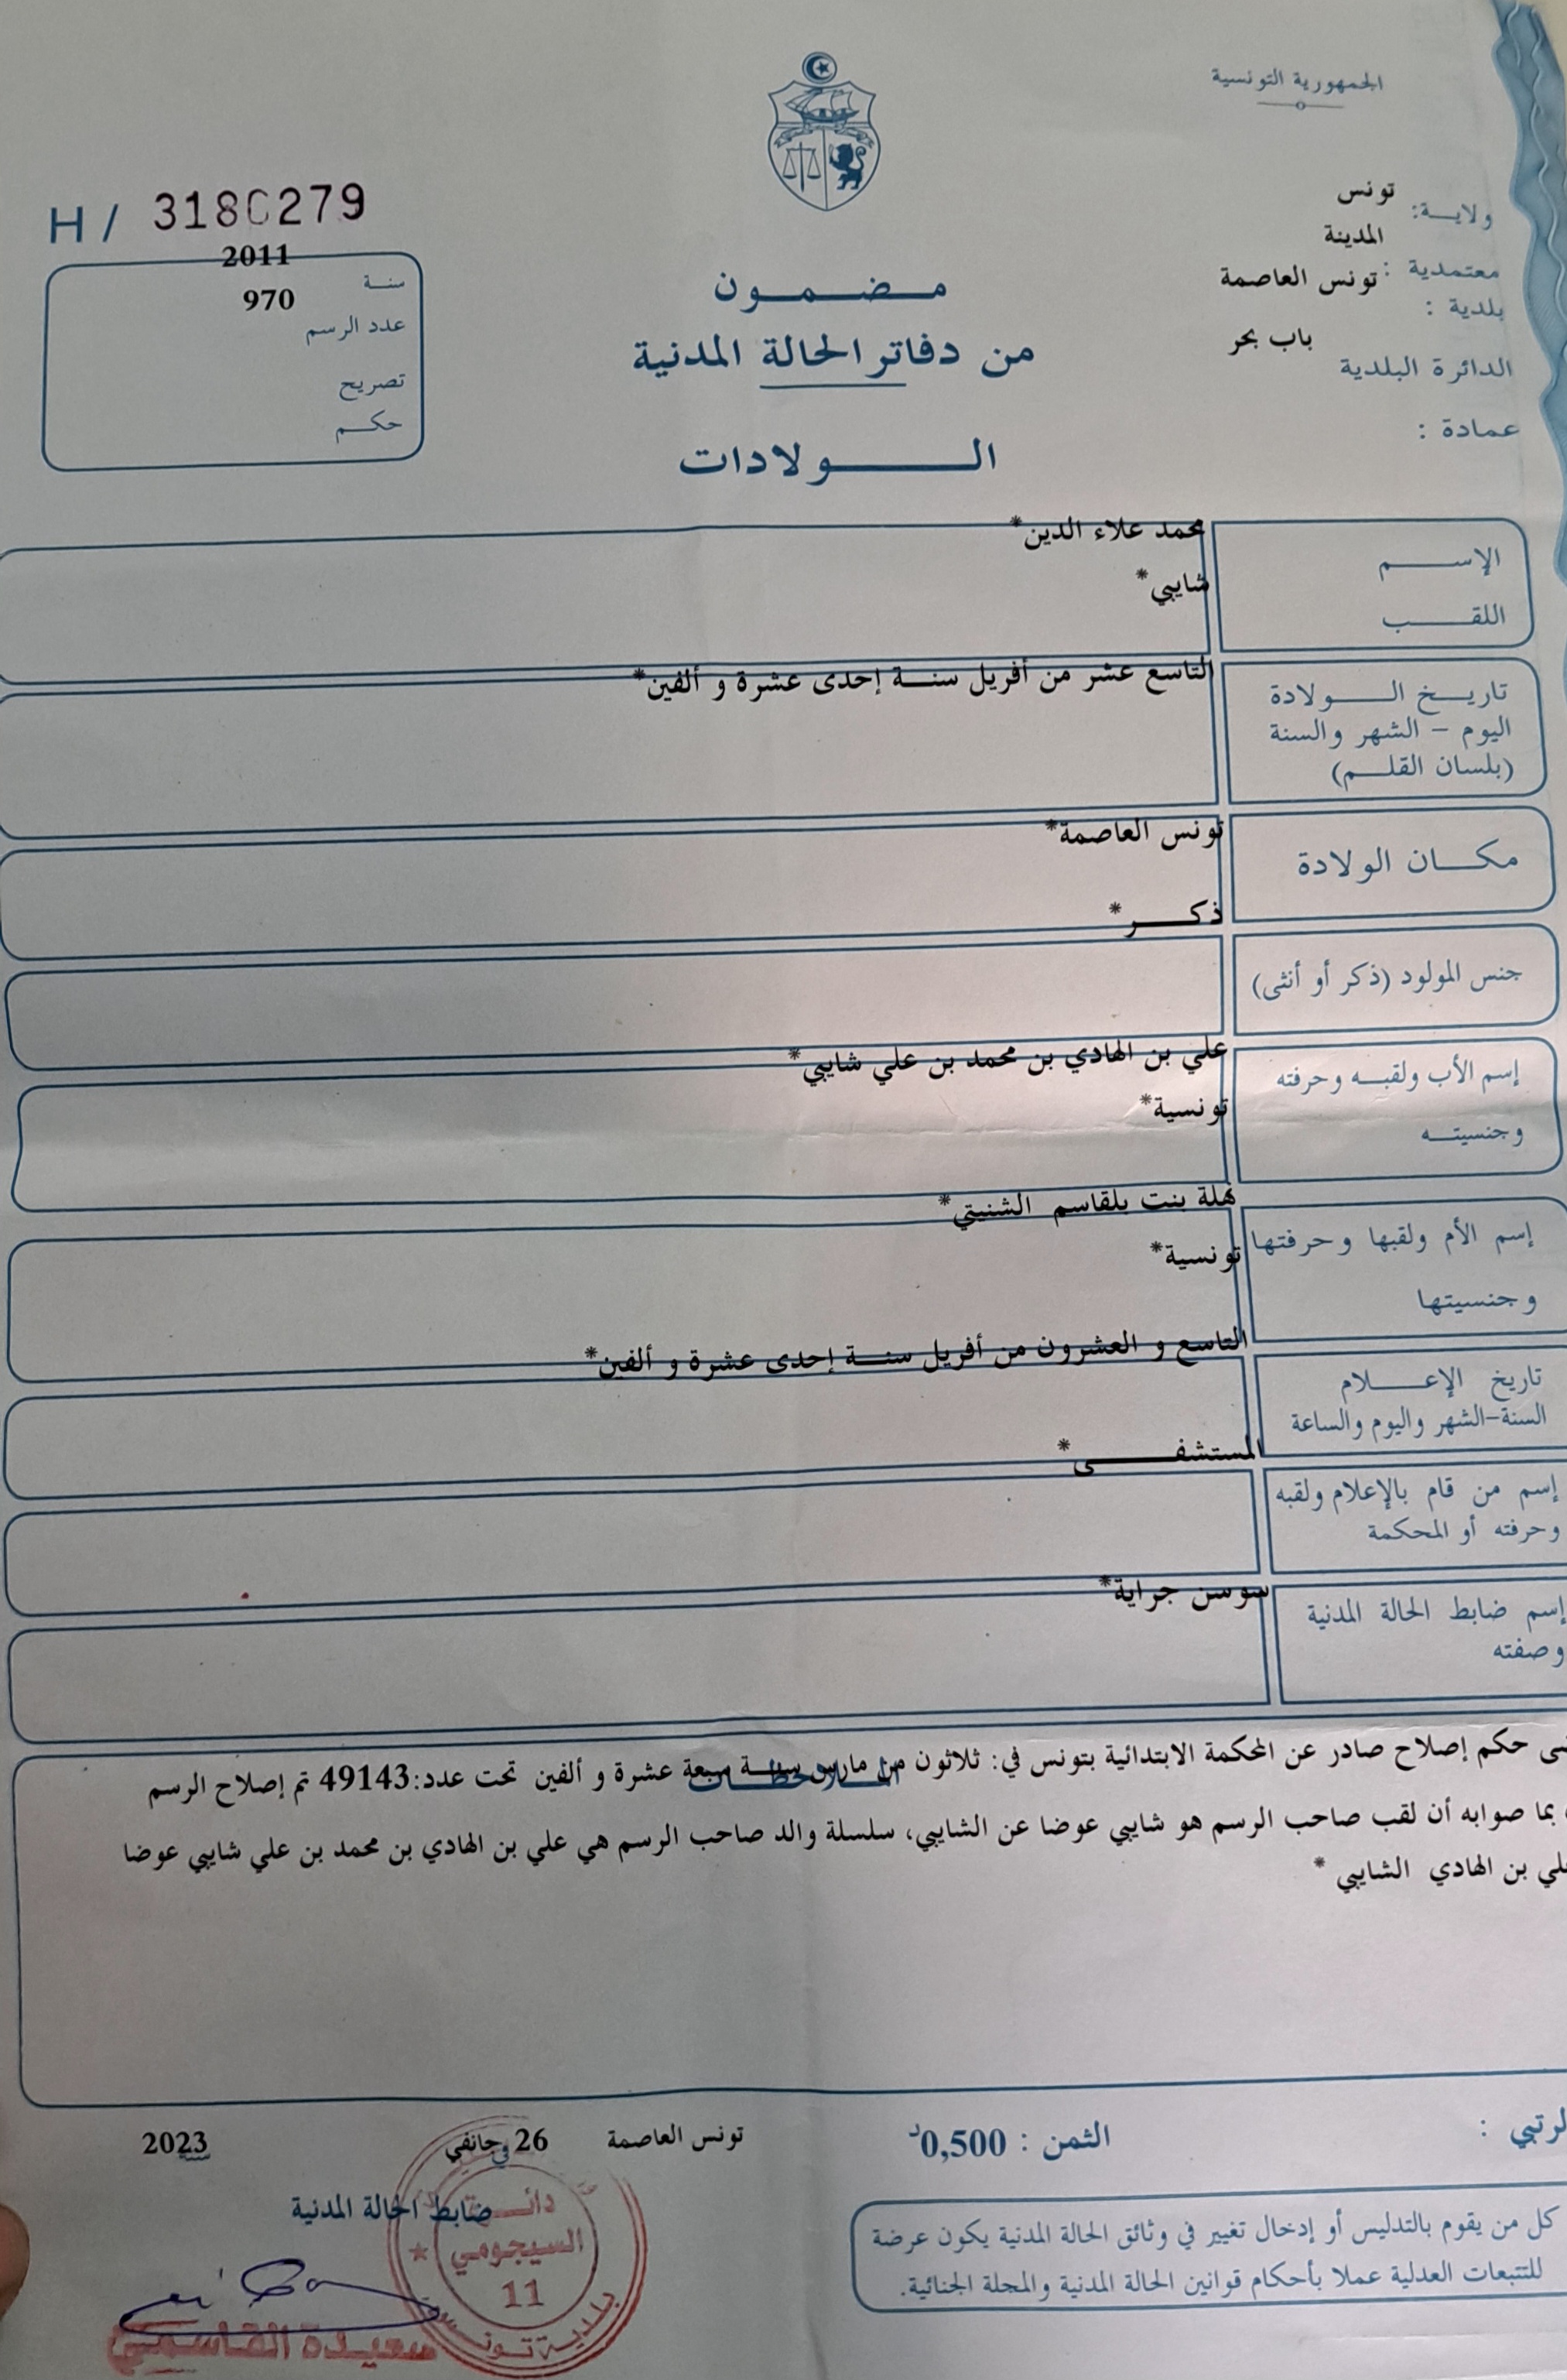 الجمهورية التونسية
ولاية: تونس
المدينة
معتمدية :
تونس العاصمة
بلدية :
الدائرة البلدية باب بحر
عمادة :
H / 3180279
سنة 2011
عدد الرسم 970
تصريح
حكم
مضمون
من دفاتر الحالة المدنية
الولادات
الإسم محمد علاء الدين*
اللقب شايبي*
تاريخ الولادة
اليوم - الشهر والسنة
(بلسان القلم)
التاسع عشر من أفريل سنة إحدى عشرة و ألفين*
مكان الولادة تونس العاصمة*
جنس المولود (ذكر أو أنثى) ذكر*
إسم الأب ولقبه وحرفته
علي بن الهادي بن محمد بن علي شايبي*
وجنسيته تونسية*
إسم الأم ولقبها وحرفتها
هلة بنت بلقاسم الشنيتي*
وجنسيتها تونسية*
تاريخ الإعلام
السنة-الشهر واليوم والساعة
التاسع و العشرون من أفريل سنة إحدى عشرة و ألفين*
إسم من قام بالإعلام ولقبه
وحرفته أو المحكمة
المستشفى*
إسم ضابط الحالة المدنية
وصفته
سوسن جراية*
الملاحظات
حكم إصلاح صادر عن المحكمة الابتدائية بتونس في: ثلاثون من مارس سنة سبعة عشرة و ألفين تحت عدد:49143 تم إصلاح الرسم
بما صوابه أن لقب صاحب الرسم هو شايبي عوضا عن الشايبي، سلسلة والد صاحب الرسم هي علي بن الهادي بن محمد بن علي شايبي عوضا
بن الهادي الشايبي *
الثمن : 0,500د
تونس العاصمة في 26 جانفي سنة 2023
ضابط الحالة المدنية
كل من يقوم بالتدليس أو إدخال تغيير في وثائق الحالة المدنية يكون عرضة
للتتبعات العدلية عملا بأحكام قوانين الحالة المدنية والمجلة الجنائية.
دائرة
السيجومي
11
بلدية تونس
سعيدة القاسمي